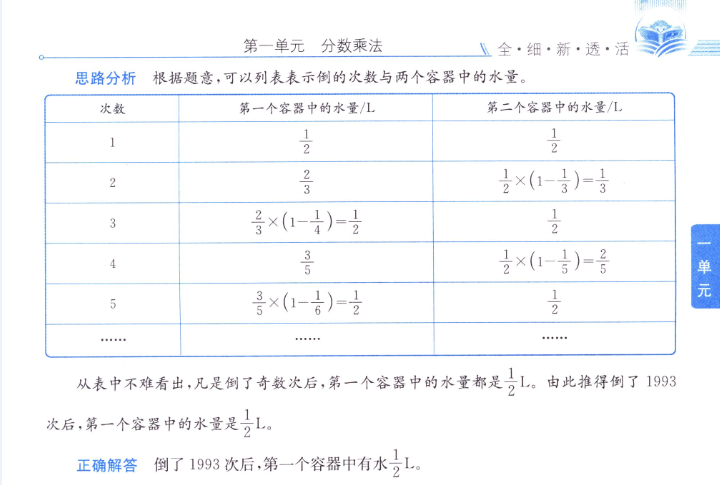 第一单元 分数乘法
全·细·新·透·活
思路分析 根据题意,可以列表表示倒的次数与两个容器中的水量。
次数 第一个容器中的水量/L 第二个容器中的水量/L
1 1/2 1/2
2 2/3 1/2×(1-1/3)=1/3
3 2/3×(1-1/4)=1/2 1/2
4 3/5 1/2×(1-1/5)=2/5
5 3/5×(1-1/6)=1/2 1/2
…… …… ……
一单元
从表中不难看出,凡是倒了奇数次后,第一个容器中的水量都是1/2L。由此推得倒了 1993
次后,第一个容器中的水量是1/2L。
正确解答 倒了 1993 次后,第一个容器中有水1/2L。